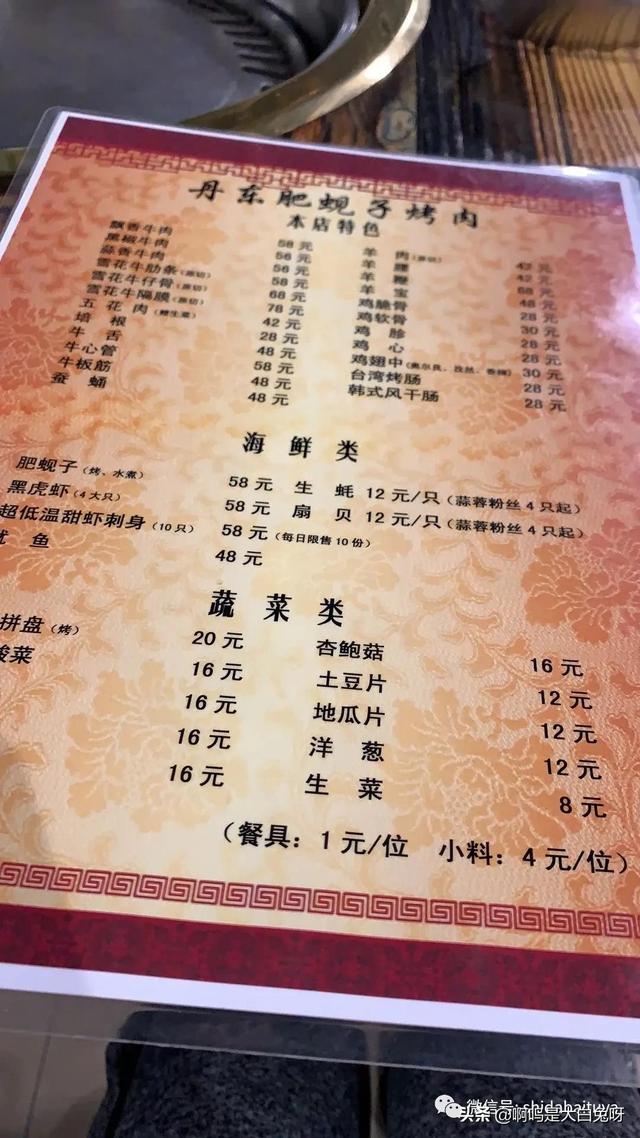 丹东肥蚬子烤肉
本店特色
飘香牛肉 58元 羊肉(原切) 42元
黑椒牛肉 56元 羊腰 42元
蒜香牛肉 56元 羊鞭 68元
雪花牛肋条(原切) 58元 羊宝 48元
雪花牛仔骨(原切) 68元 鸡脆骨 28元
雪花牛隔膜(原切) 78元 鸡软骨 30元
五花肉(赠生菜) 42元 鸡胗 28元
培根 28元 鸡心 28元
牛舌 48元 鸡翅中(奥尔良、孜然、香辣) 30元
牛心管 58元 台湾烤肠 28元
牛板筋 48元 韩式风干肠 28元
蚕蛹 48元
海鲜类
肥蚬子(烤、水煮) 58元 生蚝 12元/只(蒜蓉粉丝4只起)
黑虎虾(4大只) 58元 扇贝 12元/只(蒜蓉粉丝4只起)
超低温甜虾刺身(10只) 58元(每日限售10份)
鱼 48元
蔬菜类
拼盘(烤) 20元 杏鲍菇 16元
菜 16元 土豆片 12元
16元 地瓜片 12元
16元 洋葱 12元
16元 生菜 8元
(餐具:1元/位 小料:4元/位)
微信号: shidabaituya
头条 @啊呜是大白兔呀